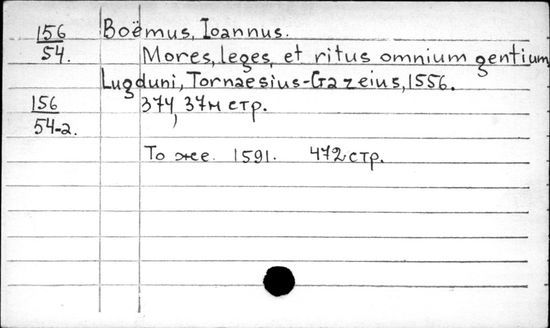 156 Boëmus, Ioannus.
54. Mores, leges, et ritus omnium gentium,
Lugduni, Tornaesius-Gazeius, 1556.
156 374, 37н стр.
54-2.
То же. 1591. 472 стр.